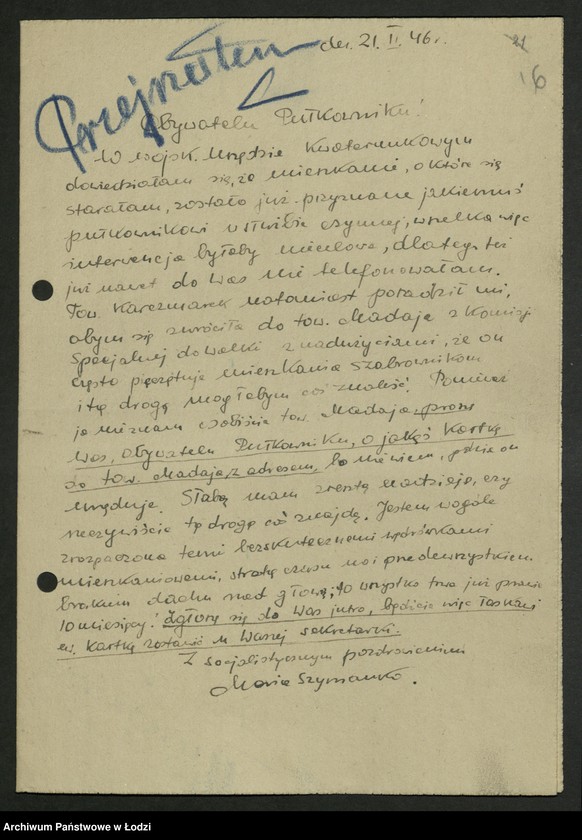 dn. 21. II. 46 r.
21
16
Przejrzałem
Obywatelu Pułkowniku!
W Wojsk. Urzędzie Kwaterunkowym
dowiedziałam się, że mieszkanie, o które się
starałam, zostało już przyznane jakiemuś
pułkownikowi w służbie czynnej, wszelka więc
interwencja byłaby niecelowa, dlatego też
już nawet do Was nie telefonowałam.
Tow. Karczmarek natomiast poradził mi,
abym się zwróciła do tow. Madaja z Komisji
Specjalnej do walki z nadużyciami, że on
często pieczętuje mieszkania szabrowników
i tą drogą mogłabym coś znaleść. Ponieważ
ja nie znam osobiście tow. Madaja, proszę
Was, Obywatelu Pułkowniku, o jakąś kartkę
do tow. Madaja, z adresem, bo nie wiem, gdzie on
urzęduje. Słabą mam zresztą nadzieję, czy
rzeczywiście tą drogą coś znajdę. Jestem wogóle
zrozpaczona temi bezskutecznemi wędrówkami
mieszkaniowemi, stratą czasu no i przedewszystkiem
brakiem dachu nad głową, to wszystko trwa już prawie
10 miesięcy. Zgłoszę się do Was jutro, będziecie więc łaskawi
ew. kartkę zostawić u Waszej sekretarki.
Z socjalistycznym pozdrowieniem
Maria Szymańska.
Archiwum Państwowe w Łodzi